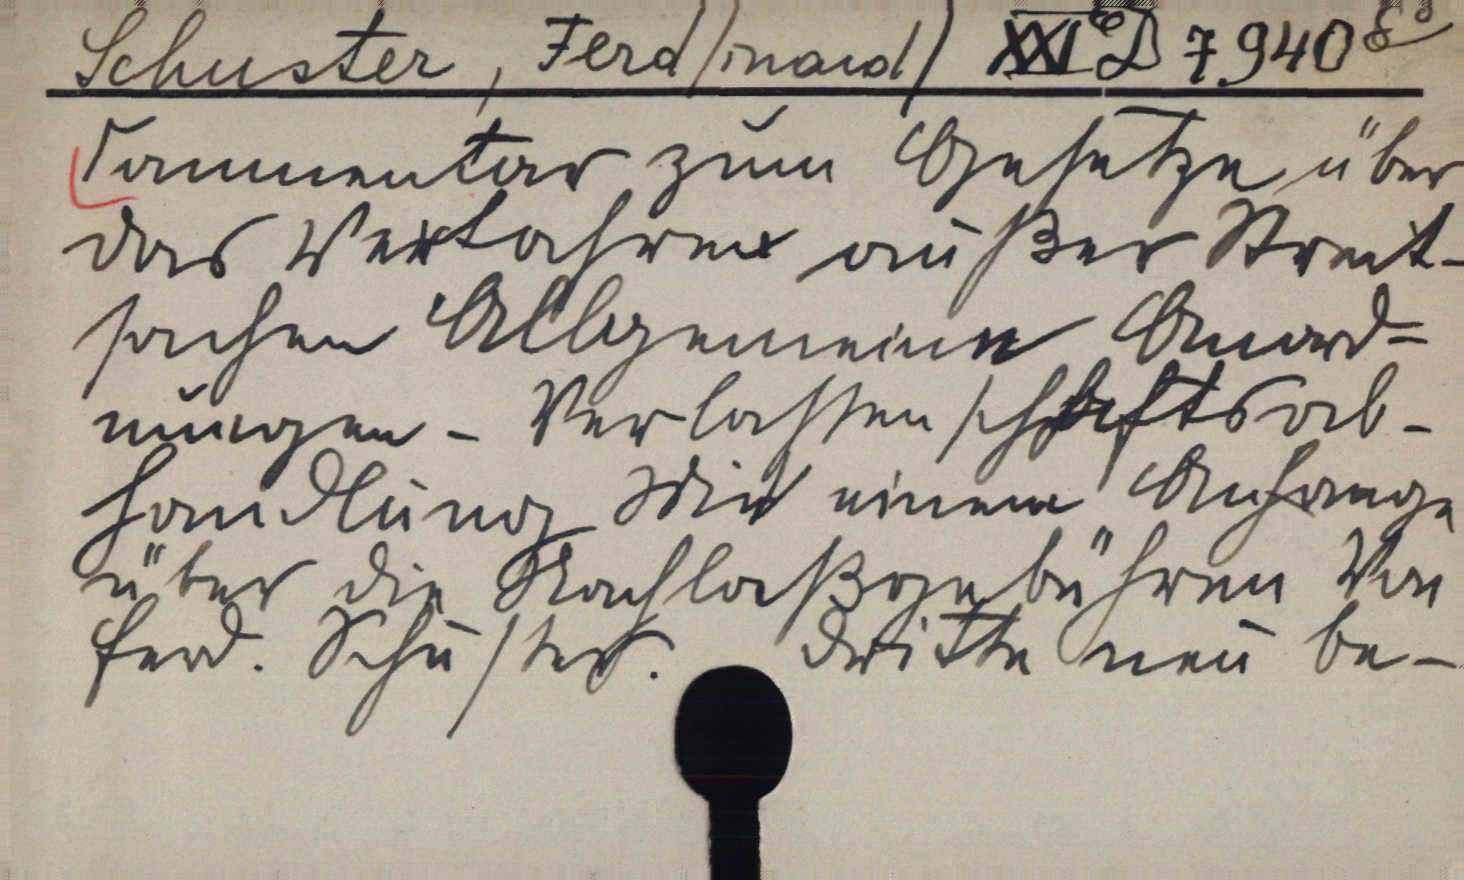 Schuster, Ferd/inand/ XXI D 7940
Commentar zum Gesetze über
das Verfahren außer Streit-
sachen Allgemeine Anord-
nungen - Verlassenschaftsab-
handlung Mit einem Anhange
über die Nachlaßgebühren Von
Ferd. Schuster. Dritte neu be-